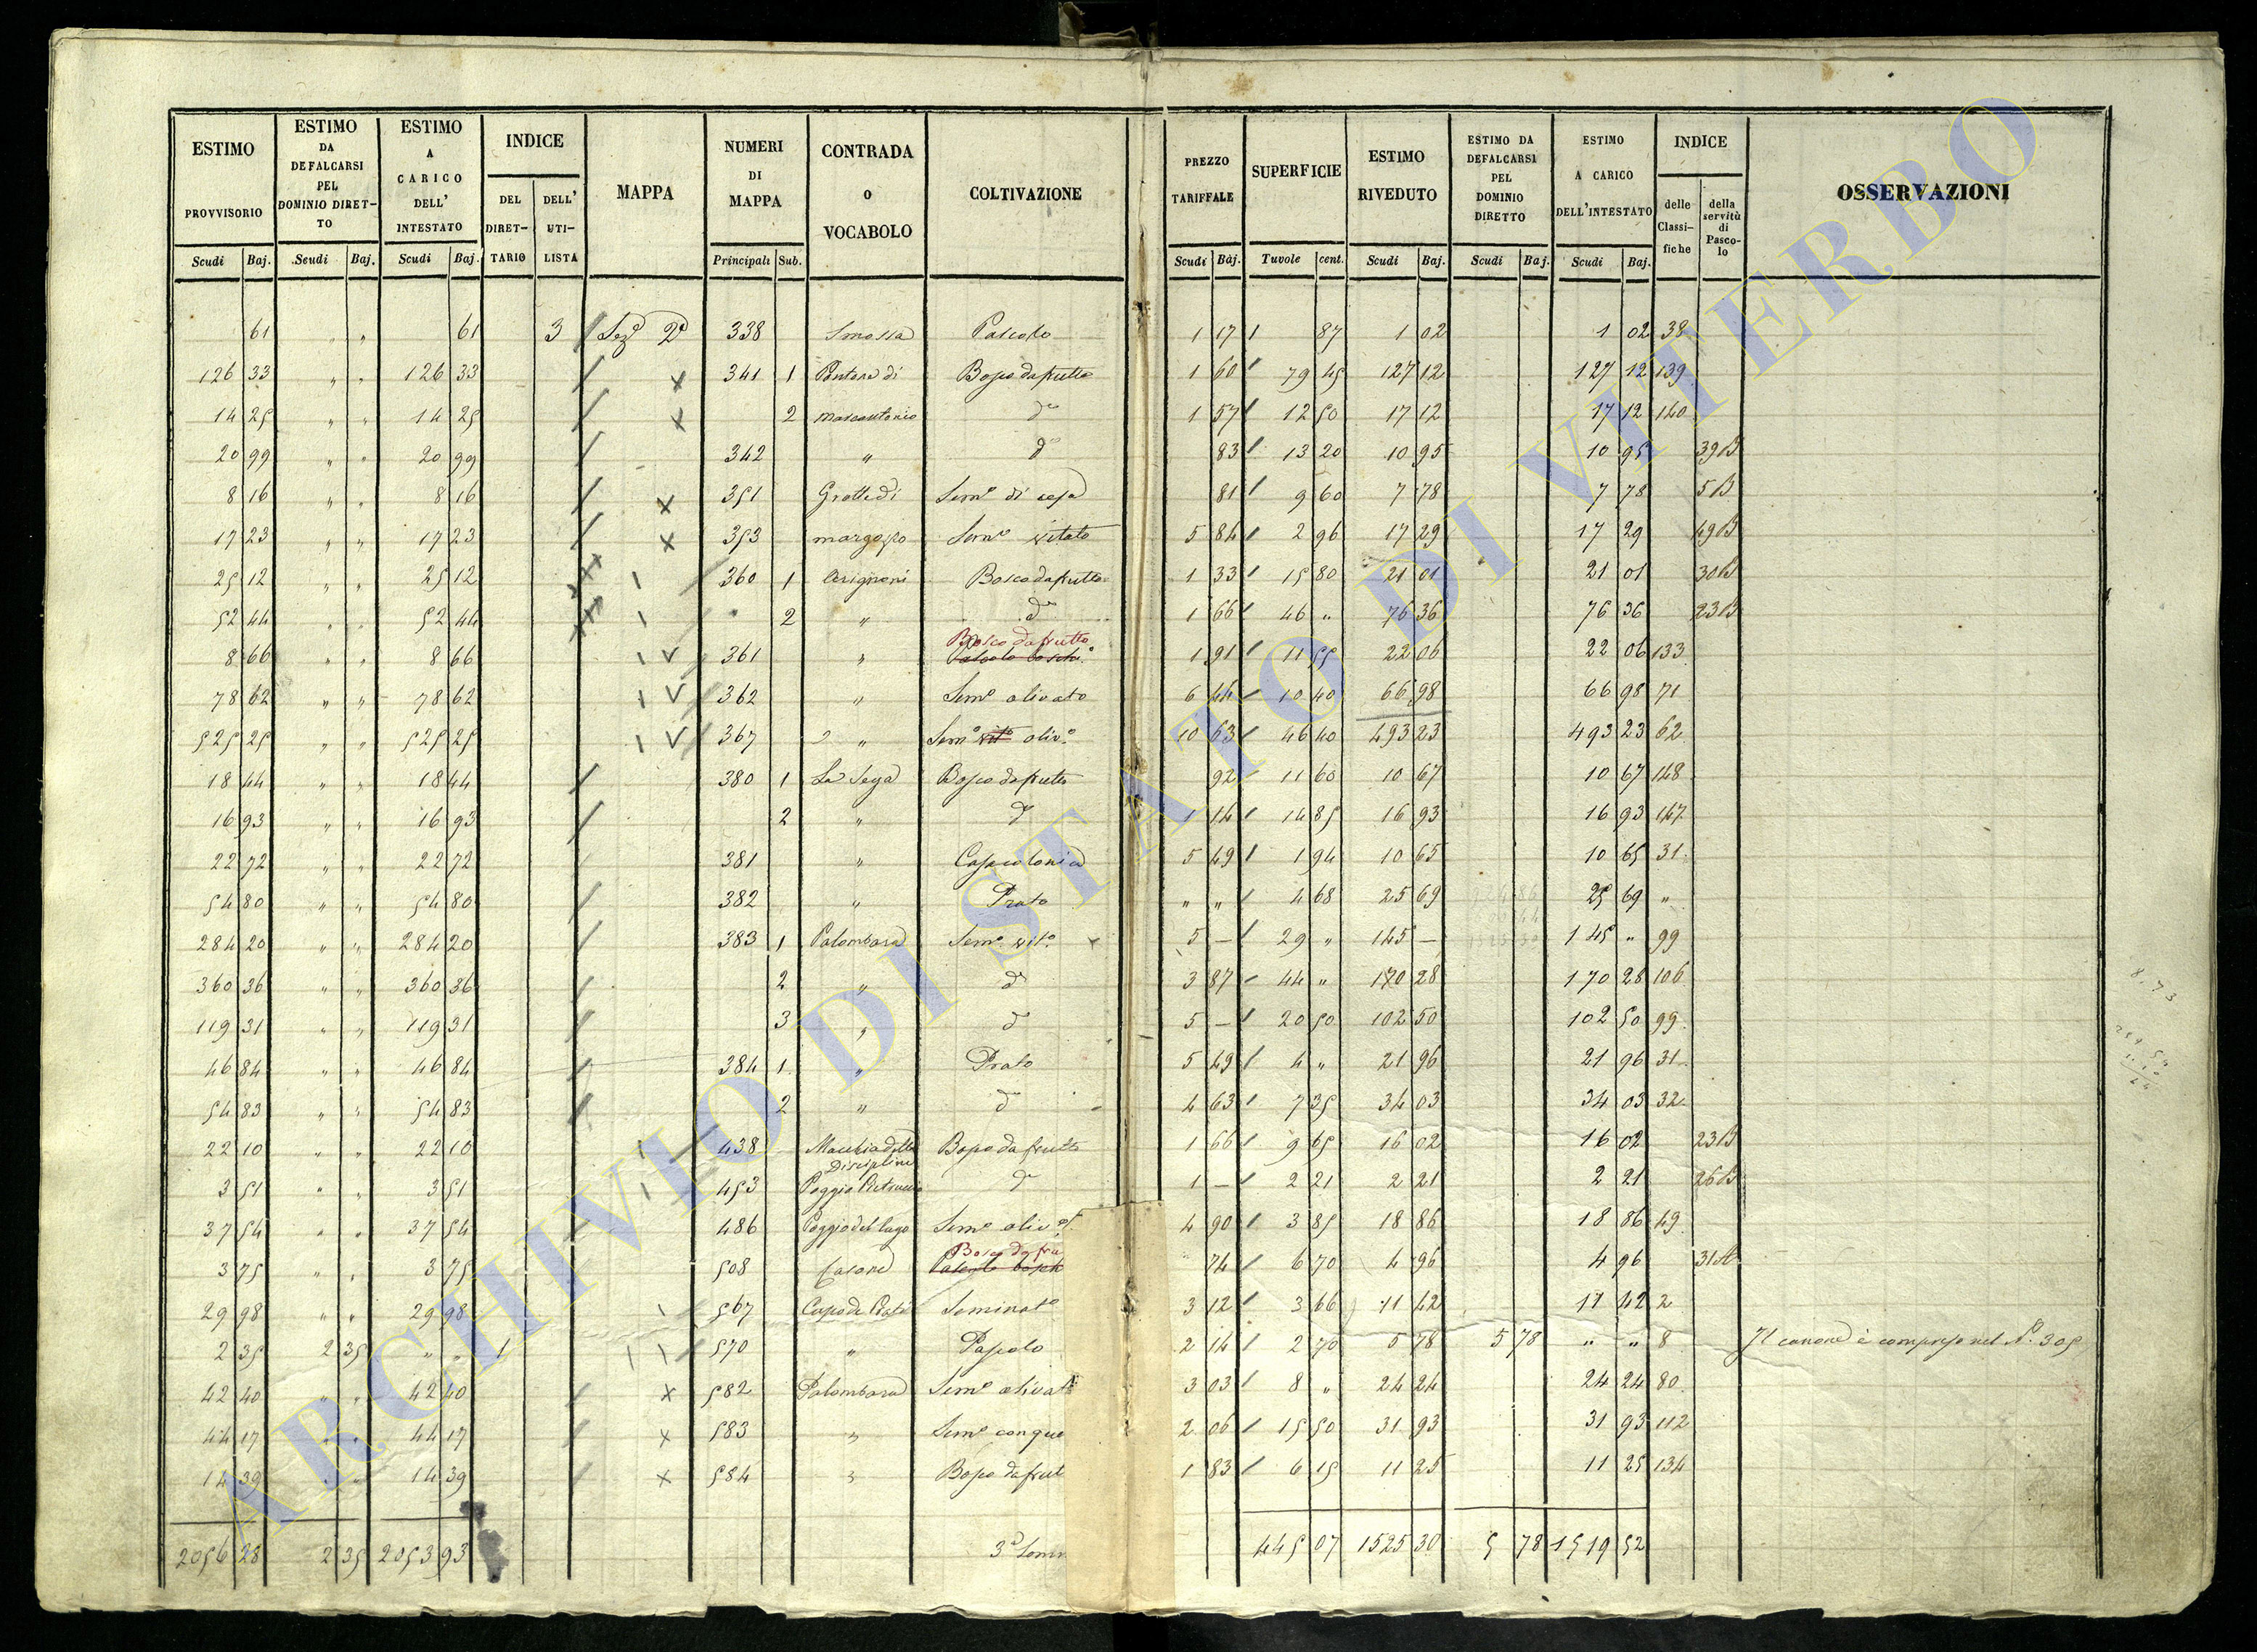 ESTIMO PROVVISORIO
ESTIMO DA DEFALCARSI PEL DOMINIO DIRETTO
ESTIMO A CARICO DELL' INTESTATO
INDICE
DEL DIRETTARIO
DELL' UTILISTA
MAPPA
NUMERI DI MAPPA
CONTRADA o VOCABOLO
COLTIVAZIONE
PREZZO TARIFFALE
SUPERFICIE
ESTIMO RIVEDUTO
ESTIMO DA DEFALCARSI PEL DOMINIO DIRETTO
ESTIMO A CARICO DELL'INTESTATO
INDICE
delle Classifiche
della servitù di Pascolo
OSSERVAZIONI
Scudi Baj. Scudi Baj. Scudi Baj. Principali Sub. Scudi Baj. Tavole cent. Scudi Baj. Scudi Baj. Scudi Baj.
61 " " 61 3 Seze 2a 338 Smossa Pascolo 1 17 87 1 02 1 02 38
126 33 " " 126 33 341 1 Bosco da frutto 1 60 79 45 127 12 127 12 139
14 25 " " 14 25 2 Marcantonio do 1 57 12 50 17 12 17 12 140
20 99 " " 20 99 342 " do 83 13 20 10 95 10 95 39B
8 16 " " 8 16 351 Grotte di Seme di 81 9 60 7 78 7 78 5B
17 23 " " 17 23 353 margozzo Seme vitato 5 84 2 96 17 29 17 29 49B
25 12 " " 25 12 360 1 Cerignoni Bosco da frutto 1 33 15 80 21 01 21 01 30B
52 44 " " 52 44 " 2 " do 1 66 46 " 76 36 76 36 23B
Bosco da frutto
8 66 " " 8 66 361 " Pascolo bosch.o 1 91 11 55 22 06 22 06 133
78 62 " " 78 62 362 " Seme olivato 6 44 10 40 66 98 66 98 71
525 25 " " 525 25 367 " Seme vito oliv.o 10 63 46 40 493 23 493 23 62
18 44 " " 18 44 380 1 Bosco da frutto 92 11 60 10 67 10 67 148
16 93 " " 16 93 2 " do 1 14 14 85 16 93 16 93 147
22 72 " " 22 72 381 " Casa colonica 5 49 1 94 10 65 10 65 31
54 80 " " 54 80 382 " Prato " " 4 68 25 69 25 69 "
284 20 " " 284 20 383 1 Palombara Seme vito 5 — 29 " 145 — 145 " 99
360 36 " " 360 36 2 " do 3 87 44 " 170 28 170 28 106
119 31 " " 119 31 3 " do 5 — 20 50 102 50 102 50 99
46 84 " " 46 84 384 1 " Prato 5 49 4 " 21 96 21 96 31
54 83 " " 54 83 2 " do 4 63 7 35 34 03 34 03 32
22 10 " " 22 10 438 Macchia delle Discipline Bosco da frutto 1 66 9 65 16 02 16 02 23B
3 51 " " 3 51 453 Poggio do 1 — 2 21 2 21 2 21 26B
37 54 " " 37 54 486 Poggio del Lago Seme oliv 4 90 3 85 18 86 18 86 49
Bosco da fru
3 75 " " 3 75 508 Casone Pascolo bosch 74 6 70 4 96 4 96 31A
29 98 " " 29 98 567 Capo de Prati Seminato 3 12 3 66 11 42 11 42 2
2 35 2 35 " " 1 570 " Pascolo 2 14 2 70 5 78 5 78 " " 8 Il canone è compreso nel N.o 305
42 40 " " 42 40 582 Palombara Seme olivat 3 03 8 " 24 24 24 24 80
44 17 " " 44 17 583 " Seme con que 2 06 15 50 31 93 31 93 112
14 39 " " 14 39 584 " Bosco da frut 1 83 6 15 11 25 11 25 134
2056 28 2 35 2053 93 3a Som 445 07 1525 30 5 78 1519 52
ARCHIVIO DI STATO DI VITERBO